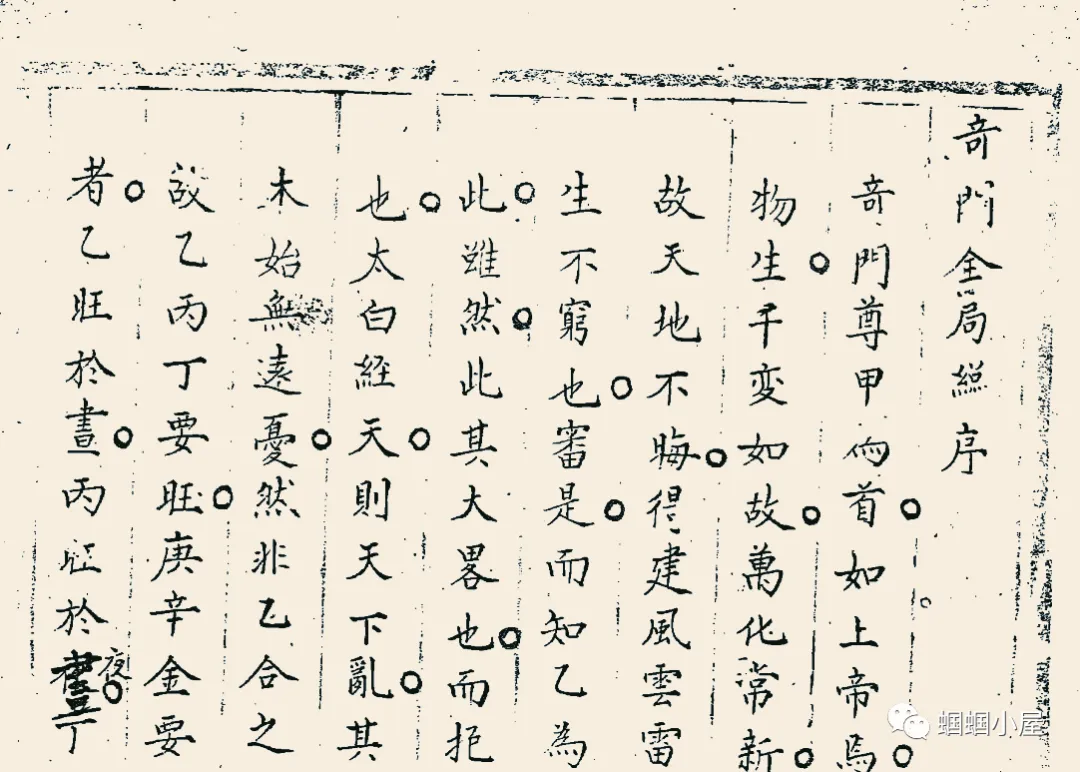 奇門全局緫序
奇門尊甲爲首。如上帝焉。
物生。千変如故。萬化常新。
故天地不晦。得建風雲雷
生不窮也。審是。而知乙為
此。雖然。此其大畧也。而抱
也。太白經天。則天下亂。其
木始無遠憂。然非乙合之
故乙丙丁要旺。庚辛金要
者。乙旺於晝。丙旺於夜。丁
蝈蝈小屋